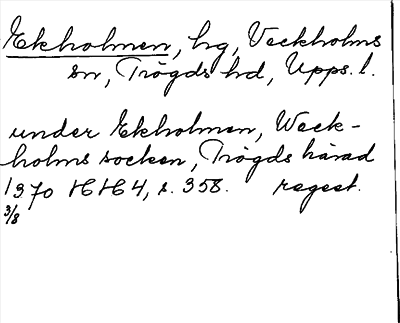 Ekholmen, hg, Veckholms
sn, Trögds hd, Upps. l.
under Ekholmen, Weck-
holms socken, Trögds härad
1370 HH 4, s. 358. regest.
3/8